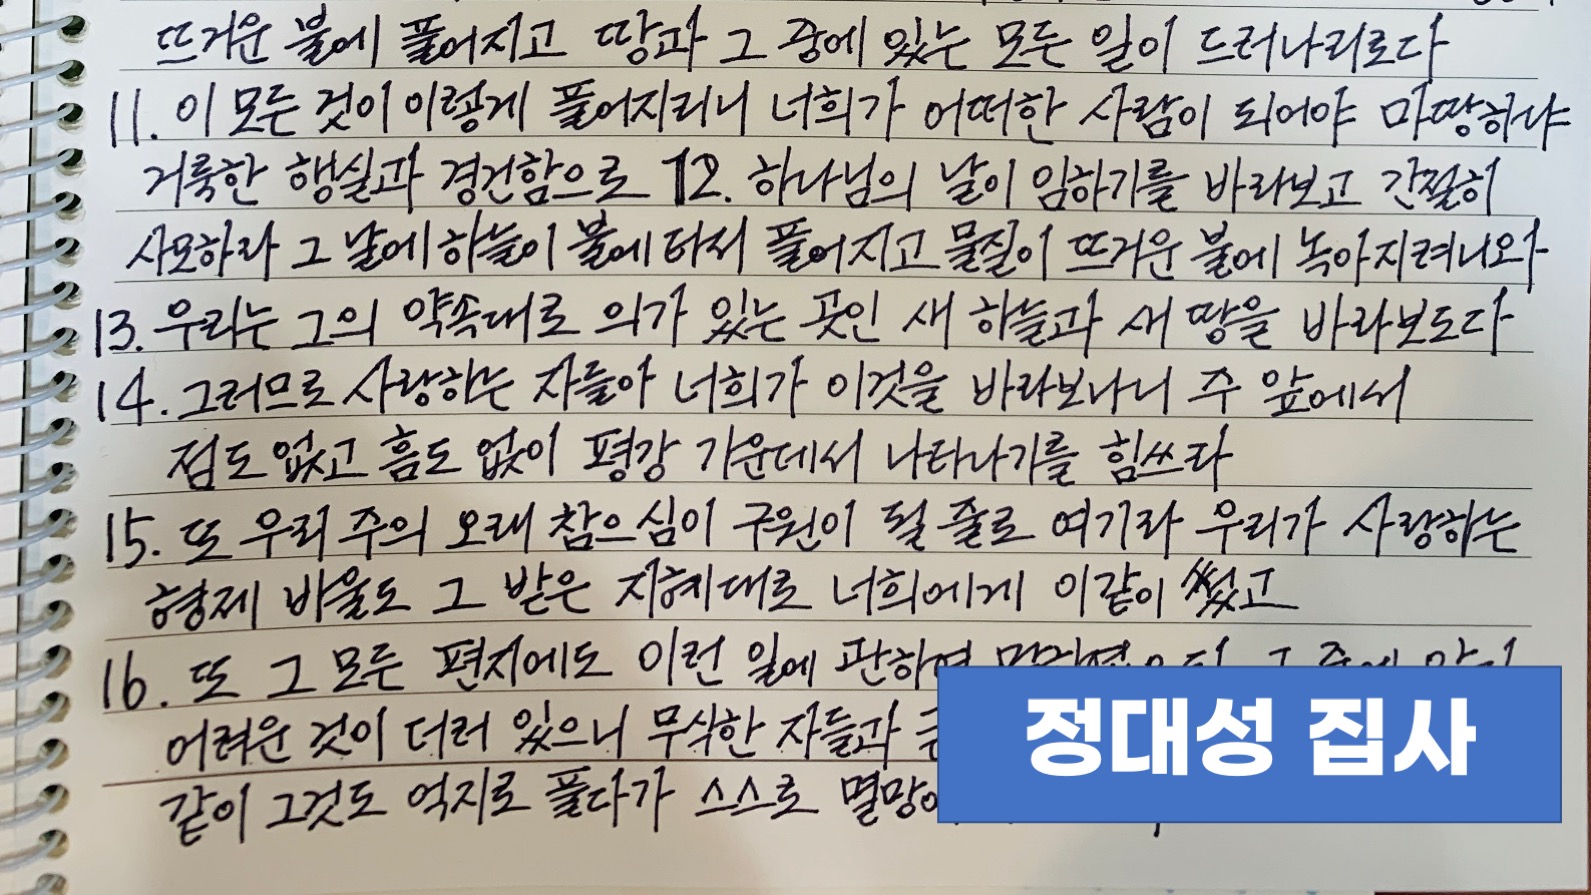 뜨거운 불에 풀어지고 땅과 그 중에 있는 모든 일이 드러나리로다
11. 이 모든 것이 이렇게 풀어지리니 너희가 어떠한 사람이 되어야 마땅하냐
거룩한 행실과 경건함으로 12. 하나님의 날이 임하기를 바라보고 간절히
사모하라 그 날에 하늘이 불에 타서 풀어지고 물질이 뜨거운 불에 녹아지려니와
13. 우리는 그의 약속대로 의가 있는 곳인 새 하늘과 새 땅을 바라보도다
14. 그러므로 사랑하는 자들아 너희가 이것을 바라보나니 주 앞에서
점도 없고 흠도 없이 평강 가운데서 나타나기를 힘쓰라
15. 또 우리 주의 오래 참으심이 구원이 될 줄로 여기라 우리가 사랑하는
형제 바울도 그 받은 지혜대로 너희에게 이같이 썼고
16. 또 그 모든 편지에도 이런 일에 관하여
어려운 것이 더러 있으니 무식한 자들과
같이 그것도 억지로 풀다가 스스로
정대성 집사